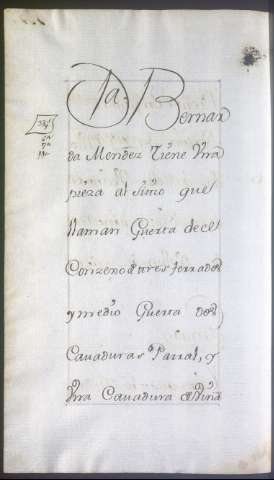 Da. Bernar
da Mendez Tiene Una
pieza al sitio que
llaman Guerta de el
Conzeno de tres ferrados
y medio Guerta dos
Cavaduras Parral, y
Una Cavadura de Viña